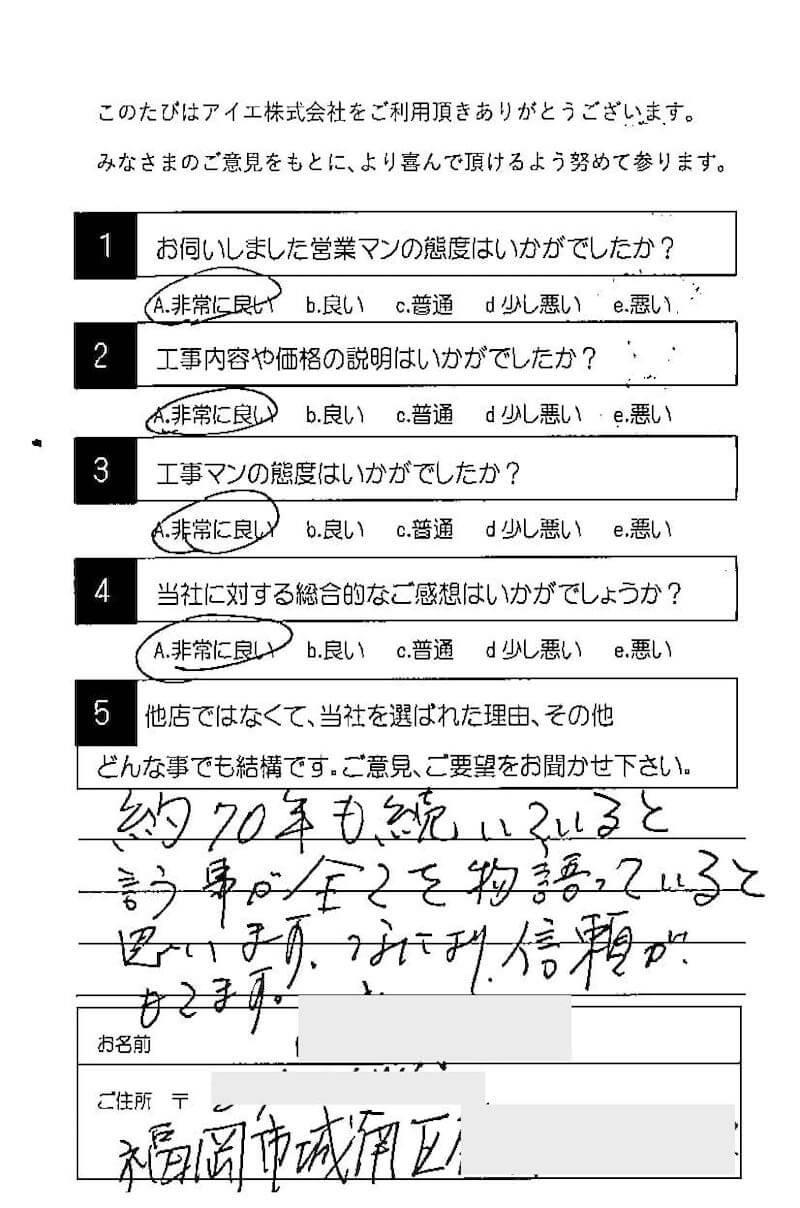 このたびはアイエ株式会社をご利用頂きありがとうございます。
みなさまのご意見をもとに、より喜んで頂けるよう努めて参ります。
1 お伺いしました営業マンの態度はいかがでしたか？
A.非常に良い b.良い c.普通 d 少し悪い e.悪い
2 工事内容や価格の説明はいかがでしたか？
A.非常に良い b.良い c.普通 d 少し悪い e.悪い
3 工事マンの態度はいかがでしたか？
A.非常に良い b.良い c.普通 d 少し悪い e.悪い
4 当社に対する総合的なご感想はいかがでしょうか？
A.非常に良い b.良い c.普通 d 少し悪い e.悪い
5 他店ではなくて、当社を選ばれた理由、その他
どんな事でも結構です。ご意見、ご要望をお聞かせ下さい。
約70年も続いていると
言う事が全てを物語っていると
思います。なにより、信頼が
もてます。
お名前
ご住所 〒
福岡市城南区